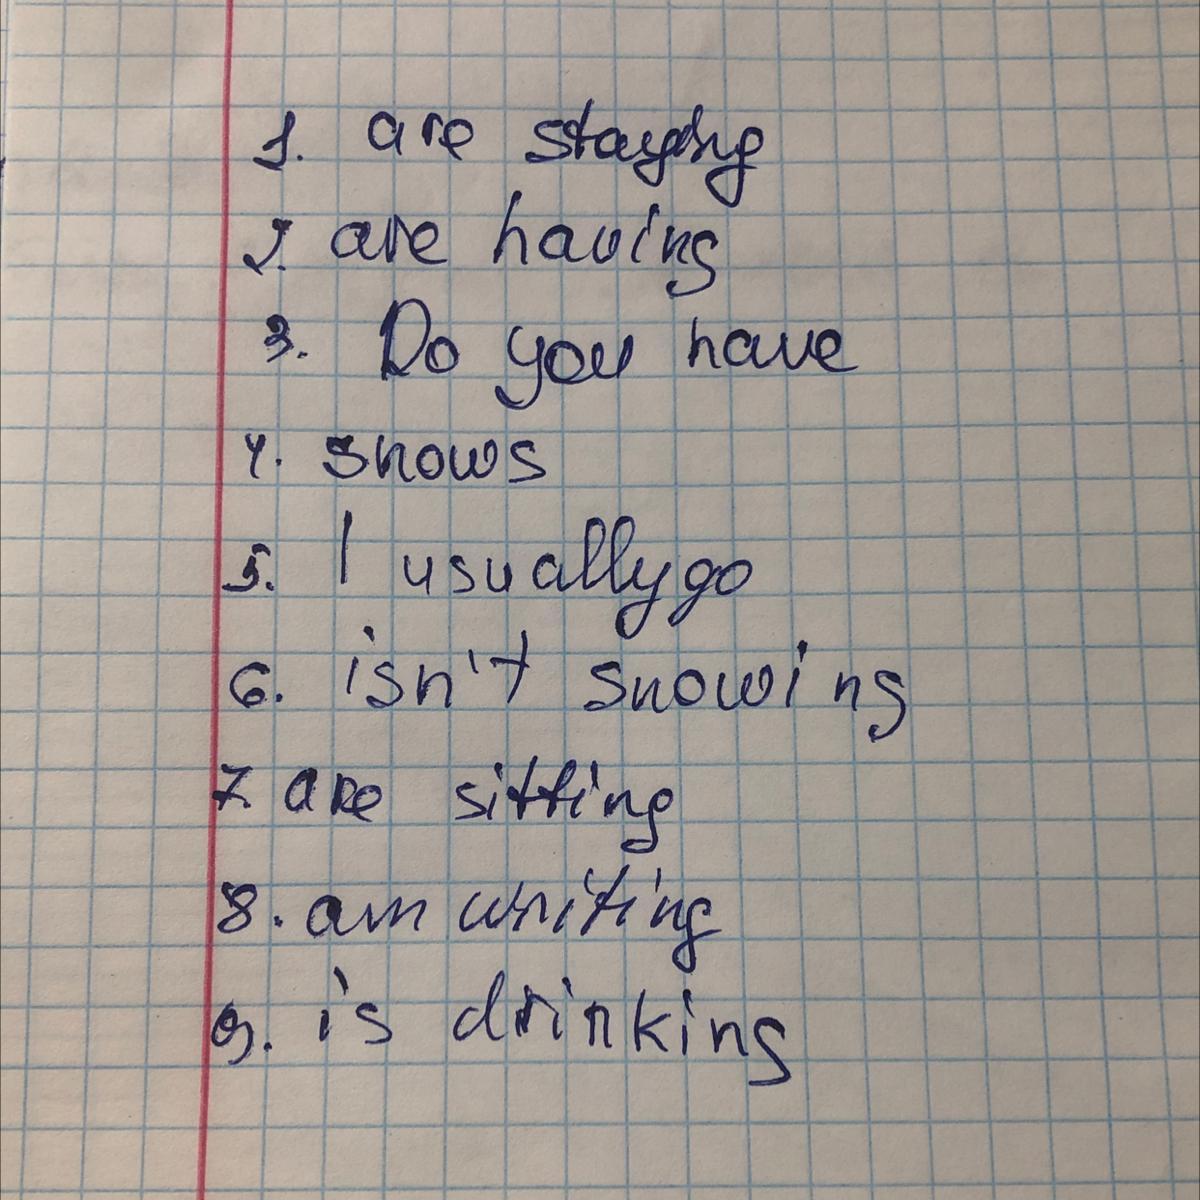 1. are staying
2. are having
3. Do you have
4. snows
5. I usually go
6. isn't snowing
7. are sitting
8. am writing
9. is drinking